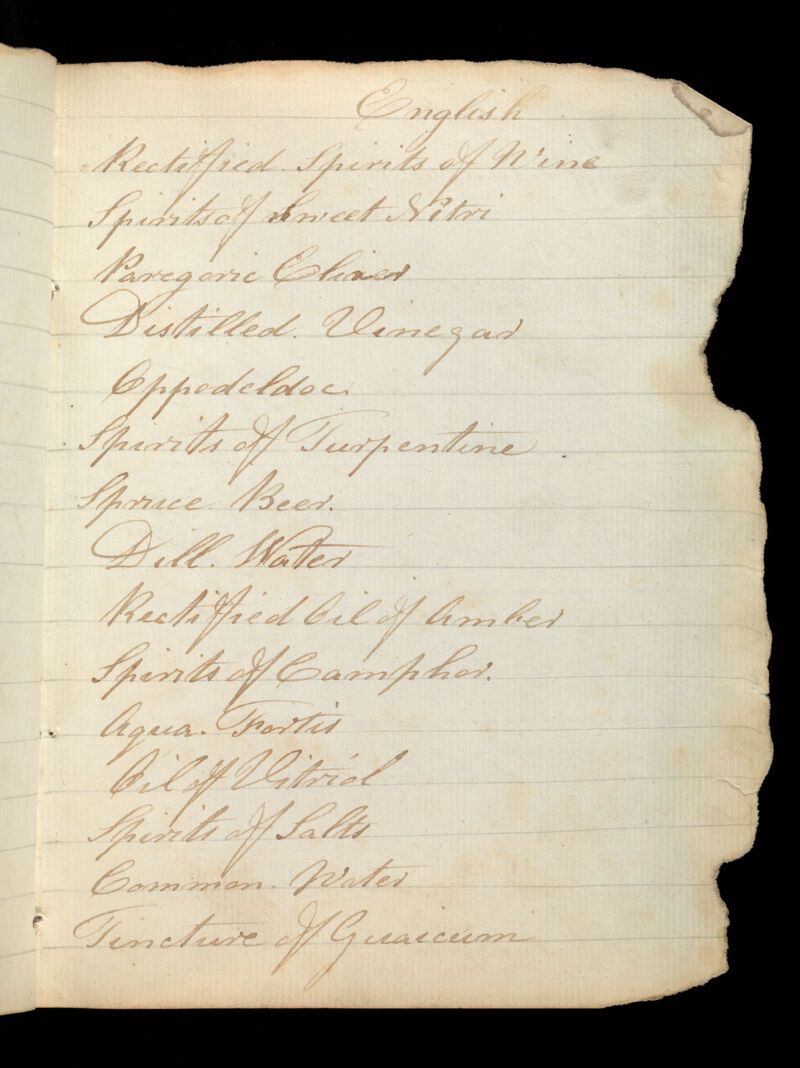 English
Rectified Spirits of Wine
Spirits of Sweet Nitri
Paregoric Elixer
Distilled. Vinegar
Oppodeldoc
Spirits of Turpentine
Spruce Beer.
Dill. Water
Rectified Oil of Amber
Spirits of Camphor.
Aqua. Fortis
Oil of Vitriol
Spirits of Salts
Common. Water
Tincture of Guaicum